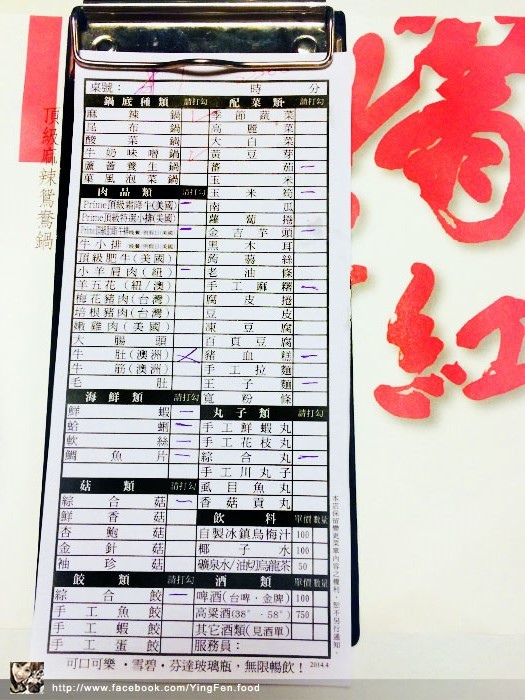 頂級麻辣鴛鴦鍋
滿
紅
桌號： 時 分
鍋底種類 請打勾
麻辣鍋
昆布鍋
酸菜鍋
牛奶味噌鍋
蔬薈養生鍋
菓風泡菜鍋
肉品類 請打勾
Prime頂級霜降牛(美國)
Prime頂級特選小排(美國)
牛小排
頂級肥牛(美國)
小羊肩肉(紐)
羊五花(紐/澳)
梅花豬肉(台灣)
培根豬肉(台灣)
嫩雞肉(美國)
大腸頭
牛肚(澳洲)
牛筋(澳洲)
毛肚
海鮮類 請打勾
鮮蝦
蛤蜊
軟絲
鯛魚片
菇類 請打勾
綜合菇
鮮香菇
杏鮑菇
金針菇
袖珍菇
餃類 請打勾
綜合餃
手工魚餃
手工蝦餃
手工蛋餃
配菜類 請打勾
季節蔬菜
高麗菜
大白菜
黃豆芽
蕃茄
玉米
玉米筍
南瓜
蘿蔔捲
金吉芋頭
黑木耳
蒟蒻絲
老油條
手工麻糬
腐皮捲
豆皮
凍豆腐
百頁豆腐
豬血糕
手工拉麵
王子麵
寬粉條
丸子類 請打勾
手工鮮蝦丸
手工花枝丸
綜合丸
手工川丸子
虱目魚丸
香菇貢丸
飲料 單價 數量
自製冰鎮烏梅汁 100
椰子水 100
礦泉水/油切烏龍茶 50
酒類 單價 數量
啤酒(台啤．金牌) 100
高粱酒(38°．58°) 750
其它酒類(見酒單)
服務員：
可口可樂．雪碧．芬達玻璃瓶，無限暢飲！ 2014.4
本店保留變更菜單內容之權利，恕不另行通知。
http://www.facebook.com/YingFen.food